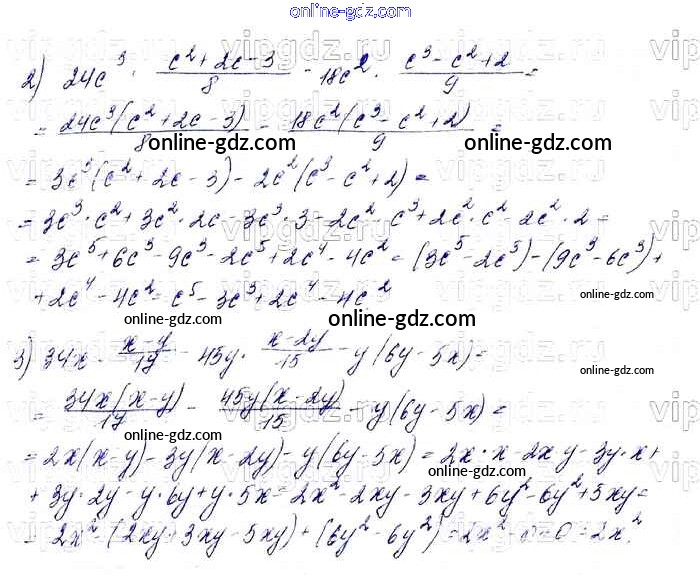 online-gdz.com
2) 24c³ · (c²+2c-3)/8 - 18c² · (c³-c²+2)/9 =
= 24c³(c²+2c-3)/8 - 18c²(c³-c²+2)/9 =
online-gdz.com online-gdz.com
= 3c³(c²+2c-3) - 2c²(c³-c²+2) =
= 3c³·c²+3c²·2c-3c³·3-2c²·c³+2c²·c²-2c²·2=
= 3c⁵+6c³-9c³-2c⁵+2c⁴-4c² = (3c⁵-2c⁵)-(9c³-6c³)+
+2c⁴-4c² = c⁵-3c³+2c⁴-4c²
online-gdz.com
online-gdz.com online-gdz.com
3) 34x · (x-y)/17 - 45y · (x-2y)/15 - y(6y-5x)=
online-gdz.com
= 34x(x-y)/17 - 45y(x-2y)/15 - y(6y-5x)=
online-gdz.com online-gdz.com
= 2x(x-y)-3y(x-2y)-y(6y-5x)=2x·x-2xy-3y·x+
online-gdz.com
+3y·2y-y·6y+y·5x=2x²-2xy-3xy+6y²-6y²+5xy=
= 2x²-(2xy+3xy-5xy)+(6y²-6y²)=2x²-0=0=2x².
online-gdz.com online-gdz.com
online-gdz.com